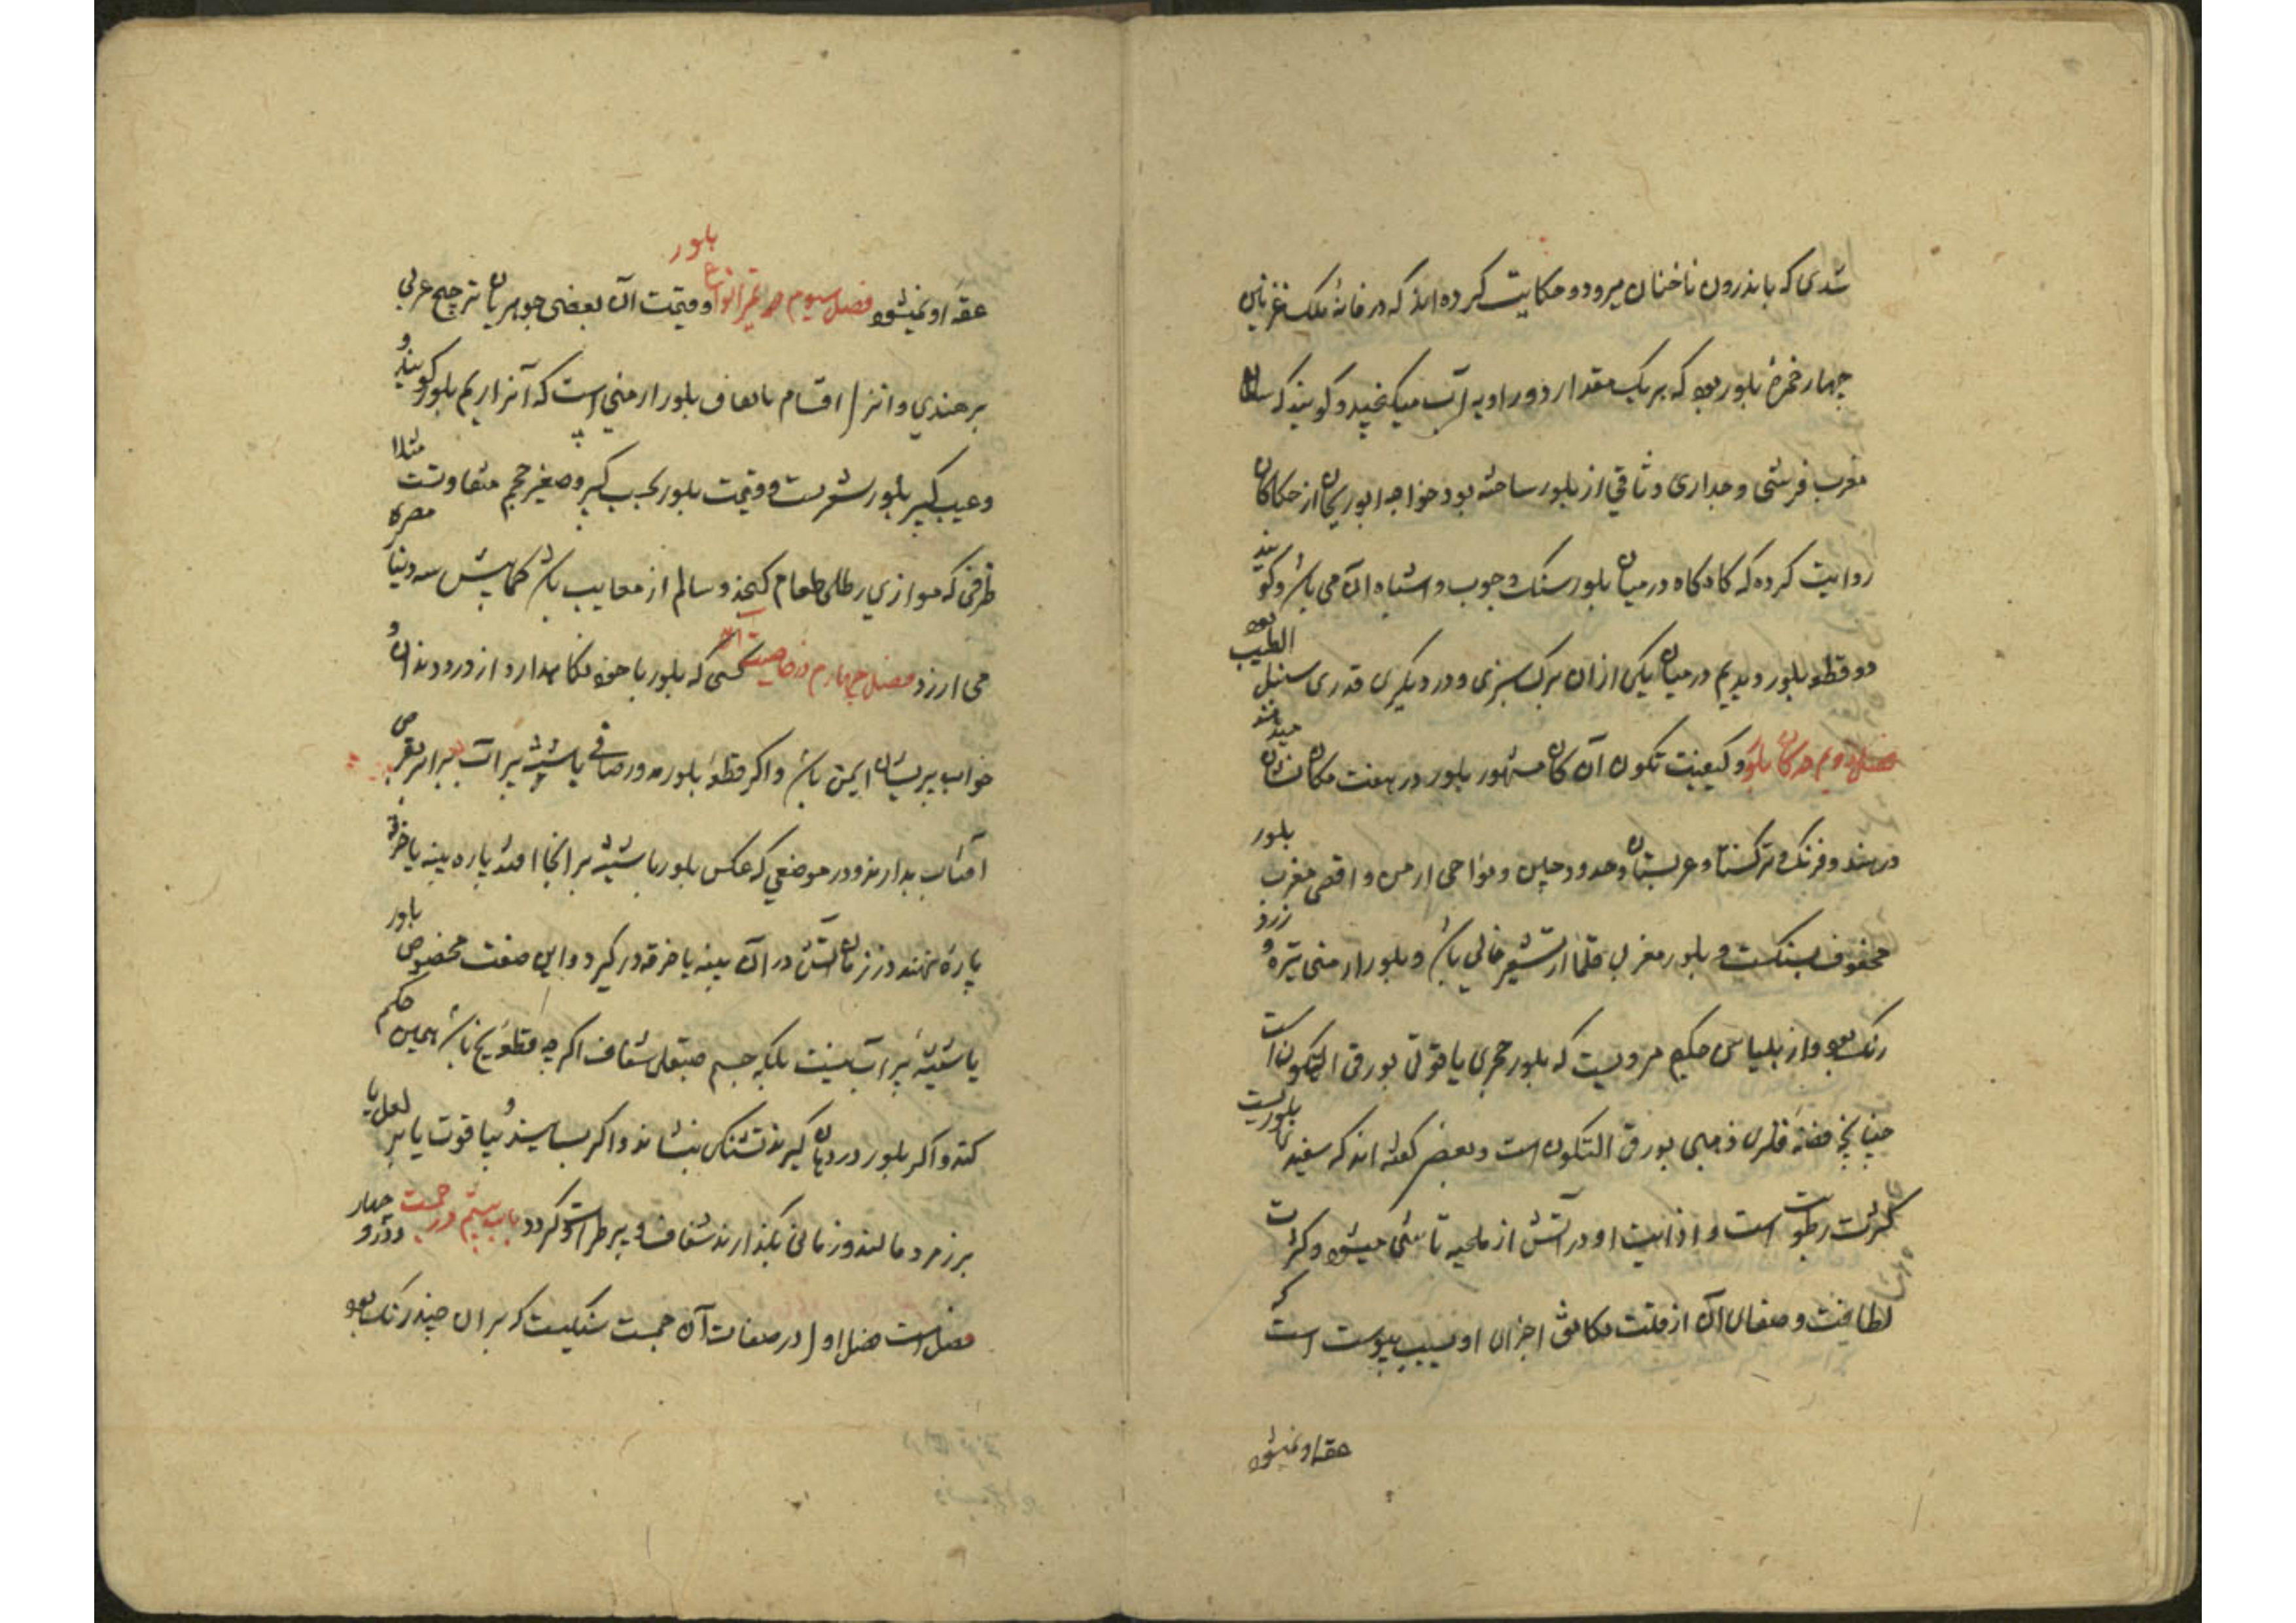 شدی که باندرون ناخنان میرود و حکایت کرده اند که در خانهٔ ملک غزنین
چهار خمرهٔ بلور بود که هر یک مقدار دو راویه آب میکنجید و کویند که سلطان
مغرب فرشی و جداری وثاقی از بلور ساخته بود خواجه ابوریحان از حکاکان
روایت کرده که کاه کاه در میان بلور سنک و چوب و اشباه آن می باشد و کویند
دو قطعه بلور دیدیم در میان یکی از ان برک سبزی و در دیکری قدری سنبل الطیب بود
فصل دویم در کان بلور و کیفیت تکون آن کان مشهور بلور در هفت مکان نشان میدهند
در هند و فرنک و ترکستان و عربستان و حدود چین و نواحی ارمن و اقصی مغرب بلور
محفوف بسنکست و بلور مغربی قلما از تشعیر خالی باشد و بلور ارمنی تیره و زرد
رنک بود و از بلیناس حکیم مرویست که بلور حجری یاقوتی بورقی التکون است
چنانچه فضه فلزی ذهبی بورقی التکون است و بعضی کفته اند که سفیدی بلوریست
کثرت رطوبت است و اذابیت او در آتش از ملحیه ناشی میشود و کثرت
لطافت و صفای آن از قلت تکاثف اجزای او بسبب یبوست است که
عقد او نمیشود
عقد او نمیشود فصل سیوم در غیر انواع بلور و قیمت آن بعضی جوهریان ترجیح عربی
بر هندی و انزل اقسام باتفاق بلور ارمنی است که آنرا ریم بلور کویند و
و عیب کبیر بلور شعرست و قیمت بلور بحسب کبر و صغیر حجم متفاوتست مثلا
ظرفی که موازی رطلی طعام کنجد و سالم از معایب باشد کمابیش سه دینار مصری
می ارزد فصل چهارم در خاصیت آن کسی که بلور با خود نکاهدارد از درد دندان و
خواب پریشان ایمن باشد و اکر قطعهٔ بلور مدور صافی یا شیشه پر آب برابر قرص
آفتاب بدارند و در موضعی که عکس بلور یا شیشه بر انجا افتد پاره پنبه یا خرقه
پارهٔ نهند در زمان آتش در آن پنبه یا خرقه درکیرد و این صفت مخصوص بلور
یا شیشهٔ پر آب نیست بلکه جسم صیقلی شفاف اکر چه قطعهٔ یخ باشد همین حکم
کند و اکر بلور در دهان کیرند تشنکی بنشاند و اکر بسایند و بیاقوت یا بر لعل یا
بر زمرد مالند و زمانی بکذارند شفاف و پر طراوت کردد باب بیستم در جمست و درو چهار
فصل است فصل اول در صفات آن جمست سنکیست که بران چند رنک بود